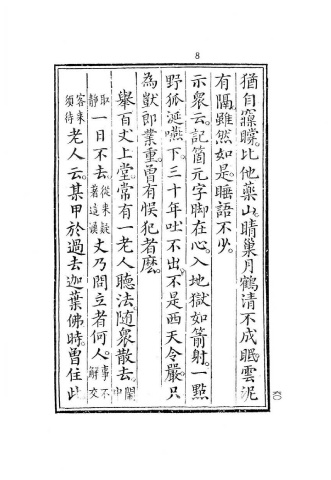 8
猶自寱矇。比他藥山。晴巢月鶴清不成眠。雲泥
有隔。雖然如是。睡語不少。
示衆云。記箇元字脚在心。入地獄如箭射。一點
野狐涎嚥下。三十年吐不出。不是西天令嚴。只
為獃郎業重。曾有悞犯者麼。
舉百丈上堂。常有一老人聽法隨衆散去。閙中
取靜一日不去。從來疑著這漢丈乃問立者何人。事不解交
客來須待老人云。某甲於過去迦葉佛時。曾住此